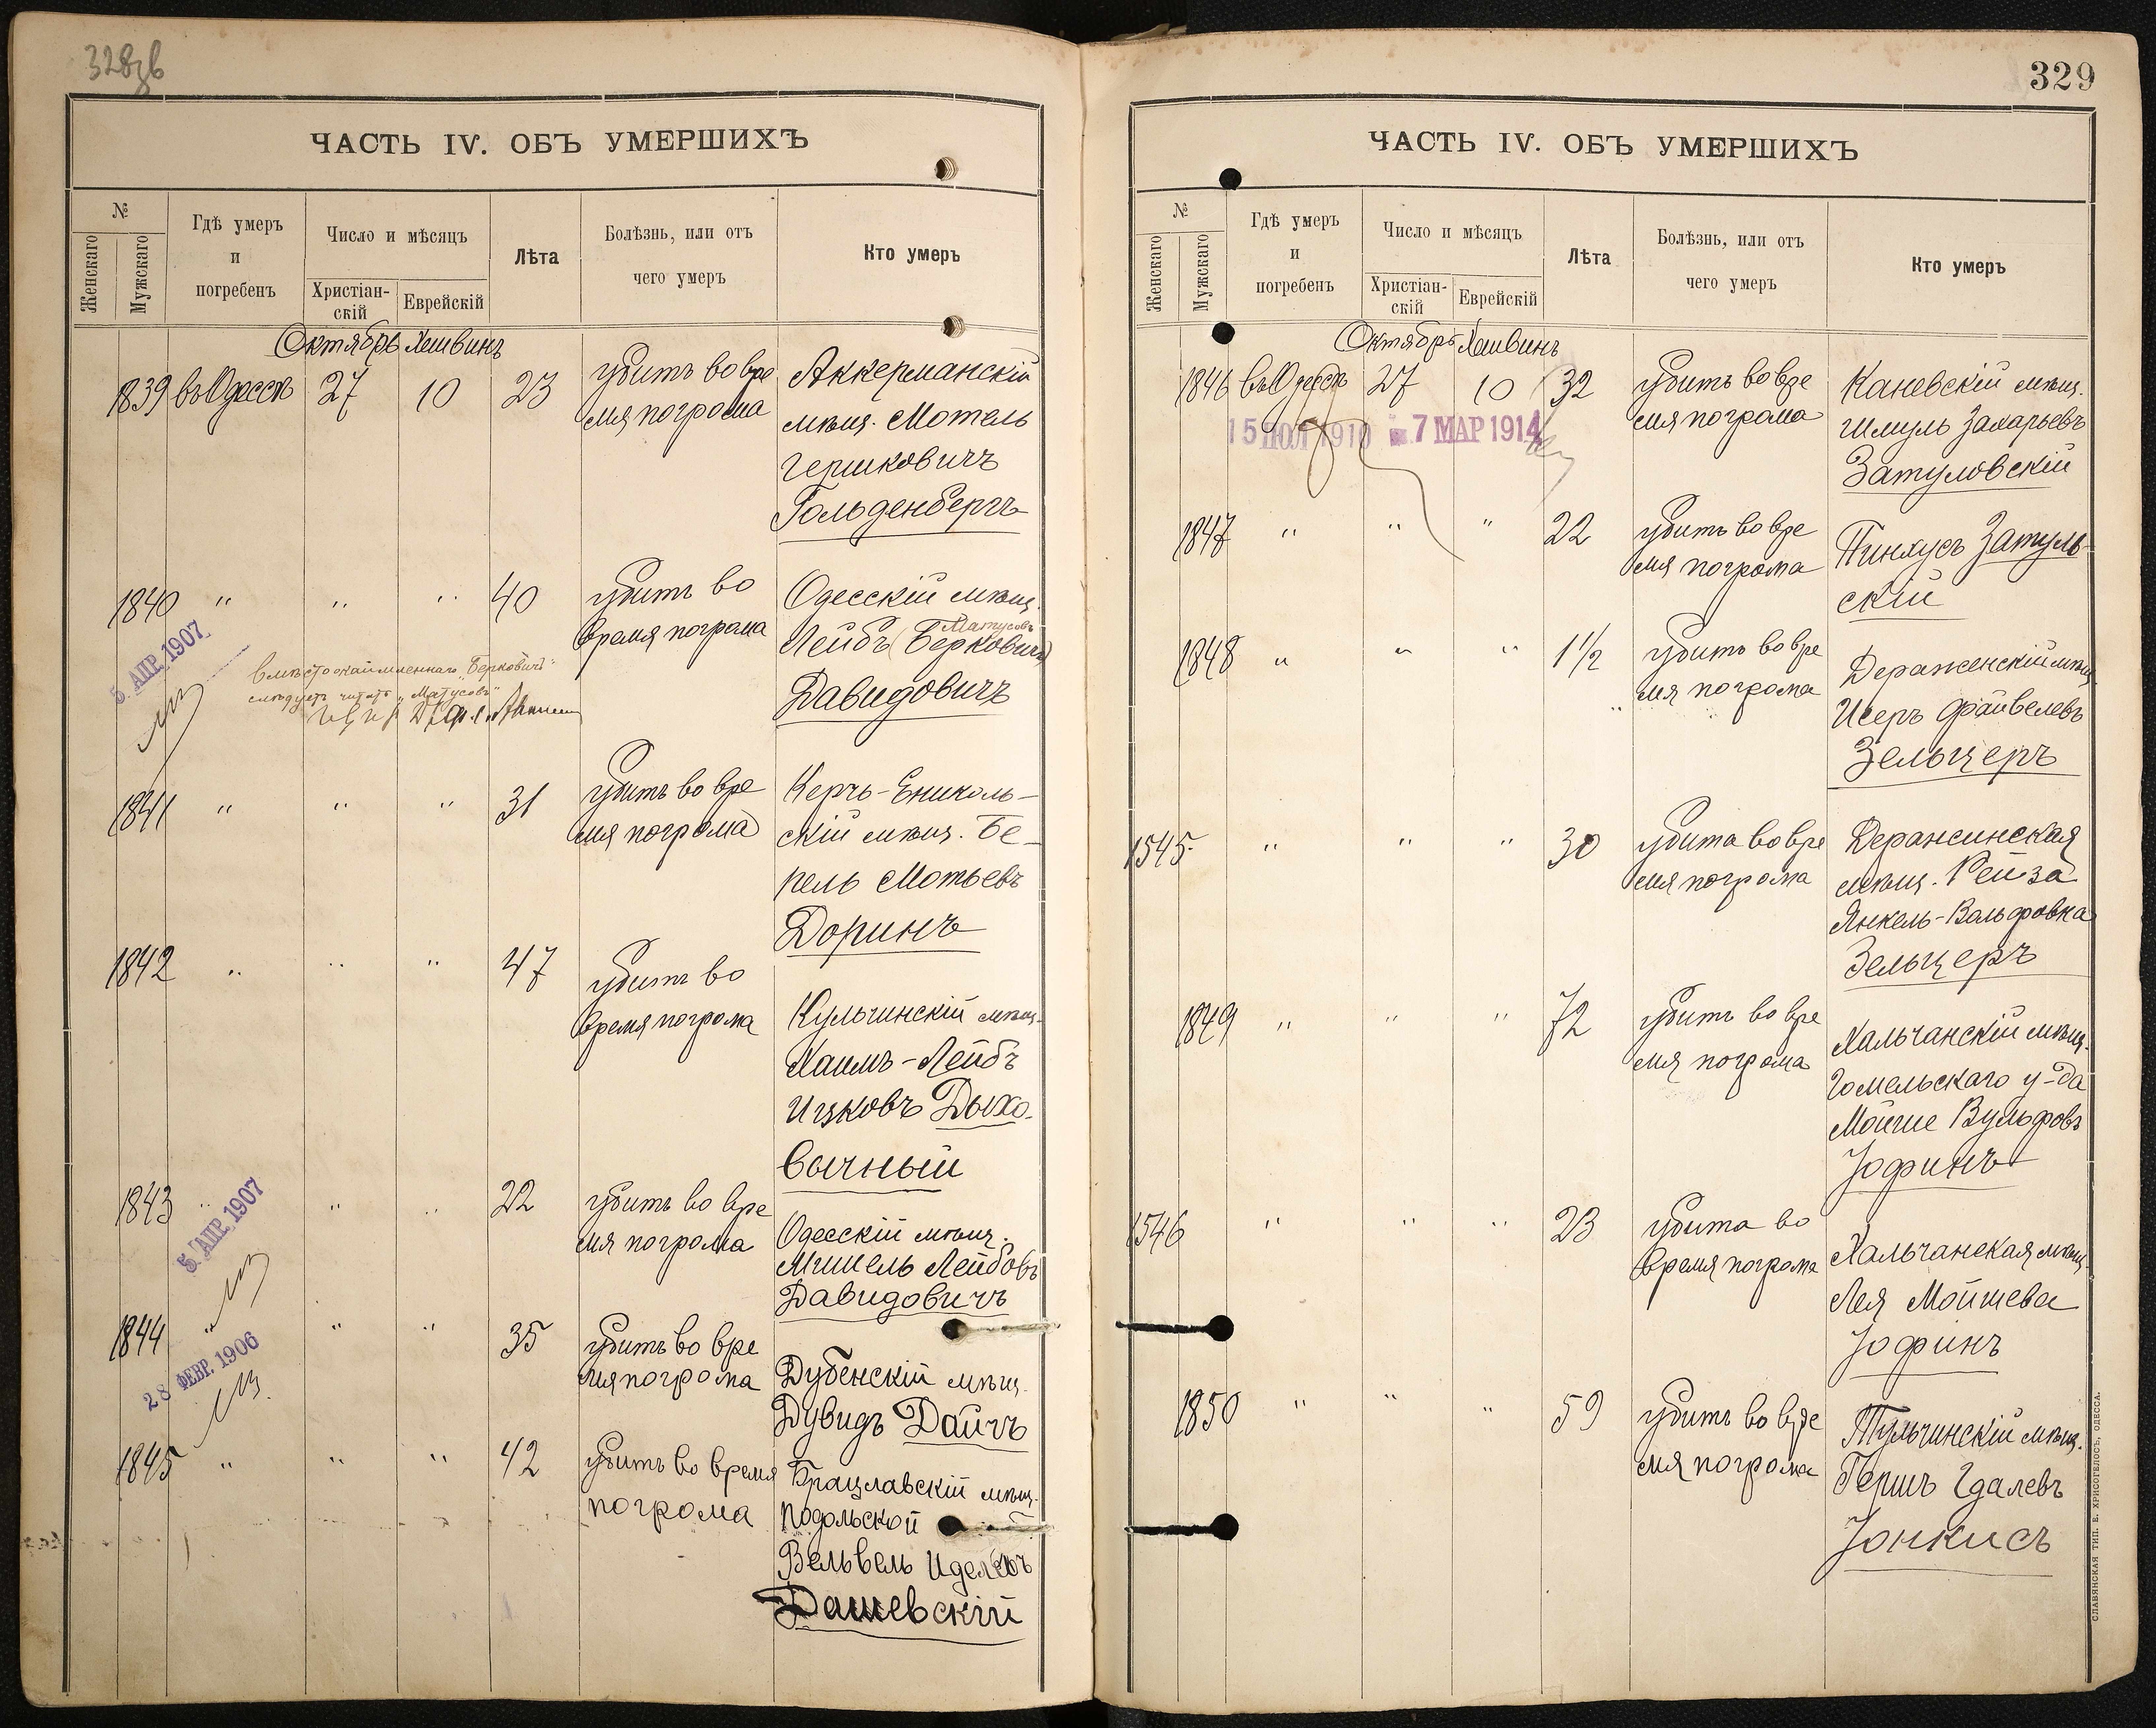 328зв
ЧАСТЬ IV. ОБЪ УМЕРШИХЪ
№
Женскаго
Мужскаго
Гдѣ умеръ
и
погребенъ
Число и мѣсяцъ
Христіан-
скій
Еврейскій
Лѣта
Болѣзнь, или отъ
чего умеръ
Кто умеръ
Октябрь Хешвинъ
1839 въ Одессѣ 27 10 23 убитъ во вре Аккерманскій
мя погрома мѣщ. Мотель
Гершковичъ
Гольденбергъ
1840 " " " 40 убитъ во Одесскій мѣщ.
Матусовъ
время погрома Лейбъ (Берковичъ)
5. АПР. 1907
вмѣсто окаймленнаго "Берковичъ"
слѣдуетъ читать "Матусовъ"
Давидовичъ
1841 " " " 31 убитъ во вре Керчь-Ениколь-
мя погрома скій мѣщ. Бе-
рель Мотьевъ
Доринъ
1842 " " " 47 убитъ во
время погрома Кульчинскій мѣщ.
Хаимъ-Лейбъ
Ицковъ Дыхо-
вичный
1843 " " " 22 убитъ во вре
5. АПР. 1907
мя погрома Одесскій мѣщ.
Мишель Лейбовъ
Давидовичъ
1844 " " " 35 убитъ во вре
28 ФЕВР. 1906
мя погрома Дубенскій мѣщ.
Дувидъ Дайчъ
1845 " " " 42 убитъ во время Брацлавскій мѣщ.
погрома Подольской
Вельвель Иделевъ
Дашевскій
329
ЧАСТЬ IV. ОБЪ УМЕРШИХЪ
№
Женскаго
Мужскаго
Гдѣ умеръ
и
погребенъ
Число и мѣсяцъ
Христіан-
скій
Еврейскій
Лѣта
Болѣзнь, или отъ
чего умеръ
Кто умеръ
Октябрь Хешвинъ
1846 въ Одессѣ 27 10 32 убитъ во вре Каневскій мѣщ.
мя погрома Шмуль Захарьевъ
15 ИЮЛ 1910 7 МАР 1914
Затуловскій
1847 " " " 22 убитъ во вре Пинхусъ Затуль-
мя погрома скій
1848 " " " 1½ убитъ во вре Дераженскій мѣщ.
мя погрома Исеръ Файвелевъ
Зельцеръ
1545 " " " 30 убита во вре Деражнинская
мя погрома мѣщ. Рейза
Янкель-Вольфовна
Зельцеръ
1849 " " " 72 убитъ во вре Хальчанскій мѣщ.
мя погрома Гомельскаго у-да
Мойше Вульфовъ
Іофинъ
1546 " " " 23 убита во
время погрома Хальчанская мѣщ.
Лея Мойшева
Іофинъ
1850 " " " 59 убитъ во вре Тульчинскій мѣщ.
мя погрома Гершъ Гдалевъ
Іонкисъ
СЛАВЯНСКАЯ ТИП. Е. ХРИСОГЕЛОСЪ, ОДЕССА.